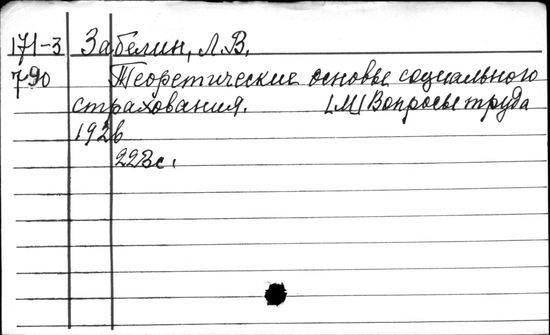 171-3 Забелин, Л.В.
790 Теоретические основы социального
страхования. [М] Вопросы труда
1926
223с.